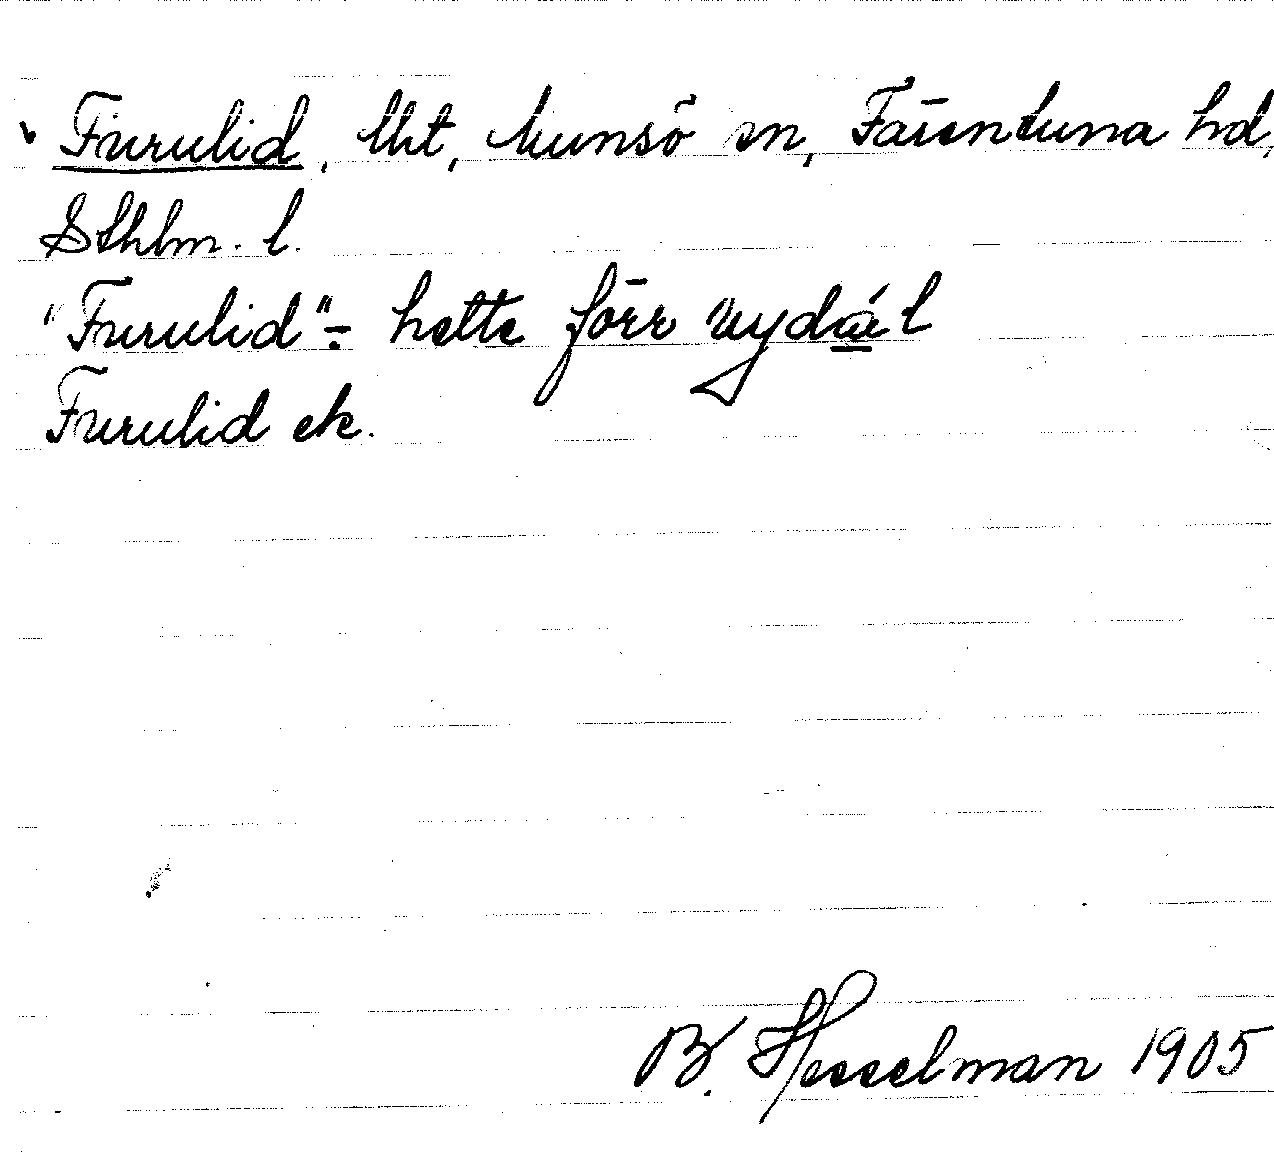 Furulid, lht, Munsö sn, Färentuna hd,
Sthlm. l.
"Furulid" ÷ hette förr nydál
Furulid ek.
B. Hesselman 1905